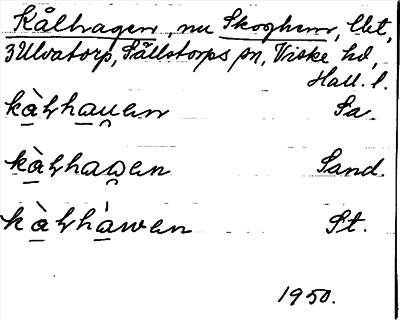 Kålhagen, nu Skoghem, lht,
3 Ulvatorp, Sällstorps sn, Viske hd,
Hall. l.
kàɫhau̯en Sa.
kàɫhaw̯en Sand.
kàɫhàwen St.
1950.